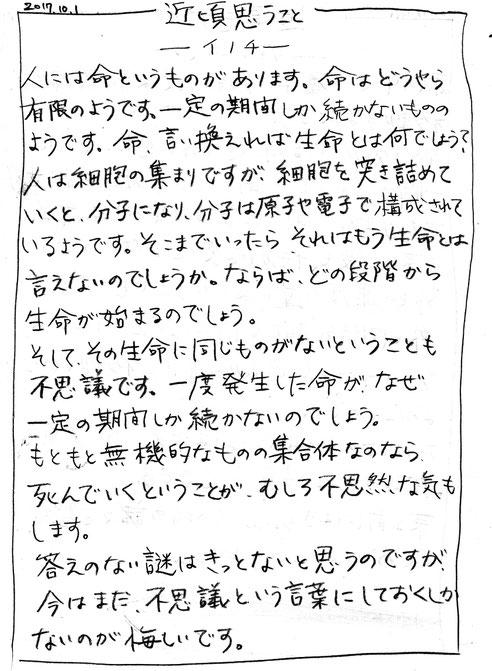 2017.10.1
近頃思うこと
―イノチ―
人には命というものがあります。命はどうやら
有限のようです。一定の期間しか続かないものの
ようです。命、言い換えれば生命とは何でしょう?
人は細胞の集まりですが、細胞を突き詰めて
いくと、分子になり、分子は原子や電子で構成されて
いるようです。そこまでいったらそれはもう生命とは
言えないのでしょうか。ならば、どの段階から
生命が始まるのでしょう。
そして、その生命に同じものがないということも
不思議です。一度発生した命が、なぜ
一定の期間しか続かないのでしょう。
もともと無機的なものの集合体なのなら、
死んでいくということが、むしろ不思然な気も
します。
答えのない謎はきっとないと思うのですが、
今はまだ、不思議という言葉にしておくしか
ないのが悔しいです。